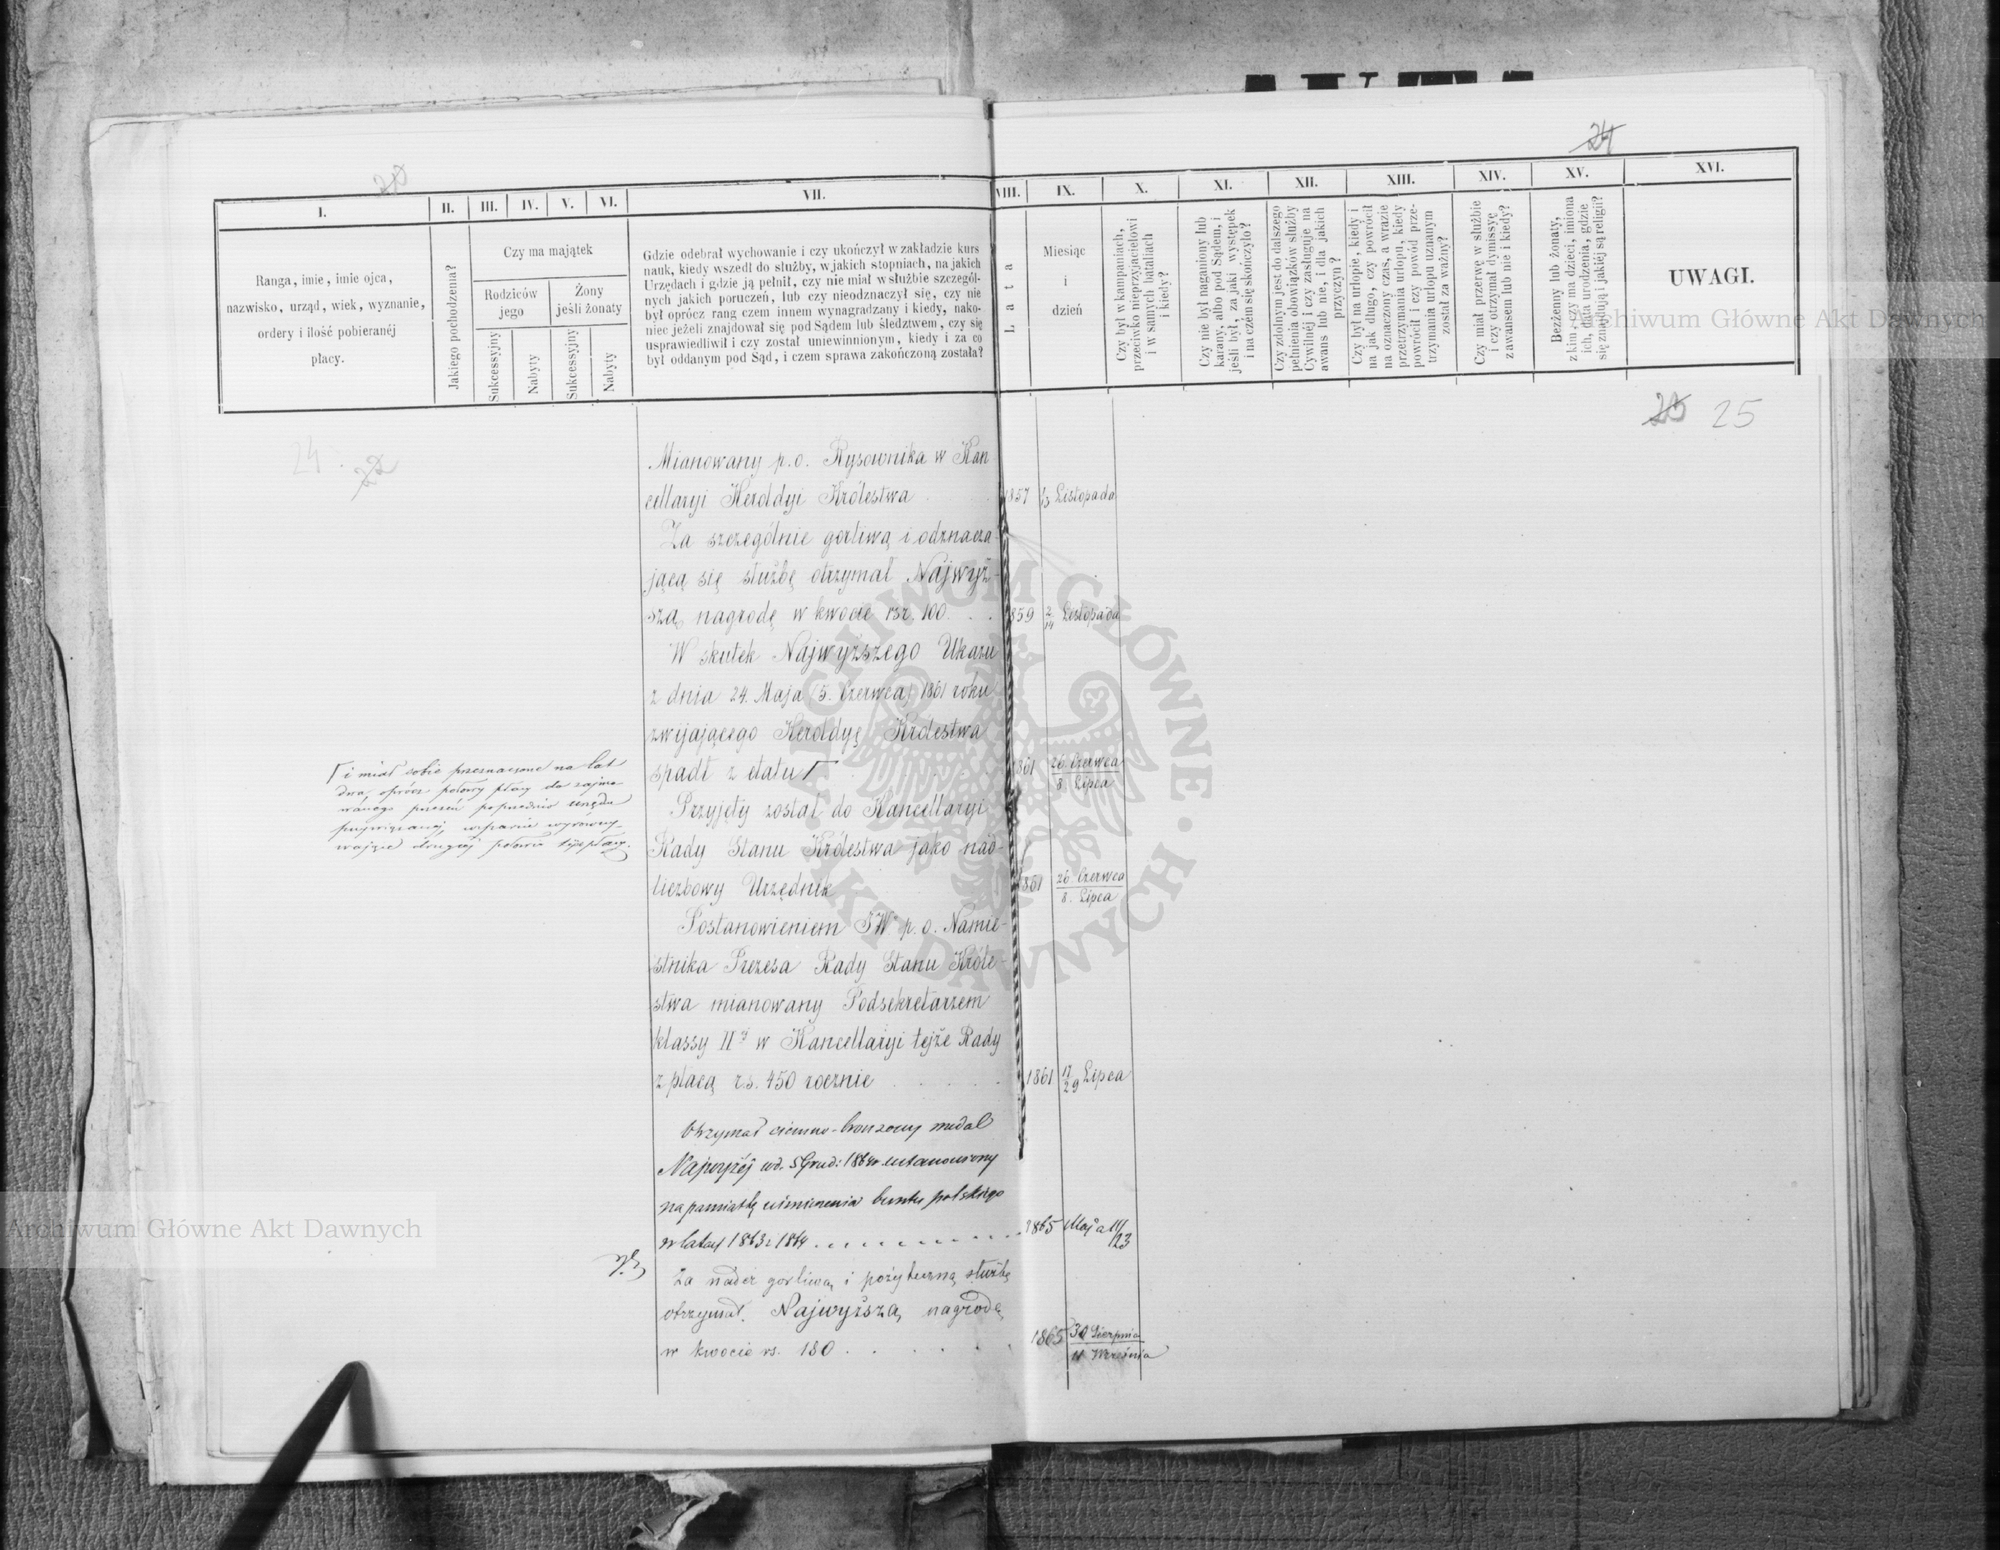 20
24
I.
II.
III.
IV.
V.
VI.
VII.
VIII.
IX.
X.
XI.
XII.
XIII.
XIV.
XV.
XVI.
Ranga, imie, imie ojca,
nazwisko, urząd, wiek, wyznanie,
ordery i ilość pobieranéj
płacy.
Jakiego pochodzenia?
Czy ma majątek
Rodziców
jego
Żony
jeśli żonaty
Sukcessyjny
Nabyty
Sukcessyjny
Nabyty
Gdzie odebrał wychowanie i czy ukończył w zakładzie kurs
nauk, kiedy wszedł do służby, w jakich stopniach, na jakich
Urzędach i gdzie ją pełnił, czy nie miał w służbie szczegól-
nych jakich poruczeń, lub czy nieodznaczył się, czy nie
był oprócz rang czem innem wynagradzany i kiedy, nako-
niec jeżeli znajdował się pod Sądem lub śledztwem, czy się
usprawiedliwił i czy został uniewinnionym, kiedy i za co
był oddanym pod Sąd, i czem sprawa zakończoną została?
Lata
Miesiąc
i
dzień
Czy był w kampaniach,
przeciwko nieprzyjacielowi
i w samych bataliach
i kiedy?
Czy nie był naganiony lub
karany, albo pod Sądem, i
jeśli był, za jaki występek
i na czem się skończyło?
Czy zdolnym jest do dalszego
pełnienia obowiązków służby
Cywilnéj i czy zasługuje na
awans lub nie, i dla jakich
przyczyn?
Czy był na urlopie, kiedy i
na jak długo, czy powrócił
na oznaczony czas, a wrazie
przetrzymania urlopu, kiedy
powrócił i czy powód prze-
trzymania urlopu uznanym
został za ważny?
Czy miał przerwę w służbie
i czy otrzymał dymissyę
z awansem lub nie i kiedy?
Bezżenny lub żonaty,
z kim, czy ma dzieci, imiona
ich, data urodzenia, gdzie
się znajdują i jakiéj są religii?
UWAGI.
Archiwum Główne Akt Dawnych
24.
22
25
Mianowany p.o. Rysownika w Kan
cellaryi Heroldyi Królestwa 1857 1/13 Listopada
Za szczególnie gorliwą i odznacza
jącą się służbę otrzymał Najwyż-
szą nagrodę w kwocie rsr. 100 . . 1859 2/14 Listopada
W skutek Najwyższego Ukazu
z dnia 24. Maja (5. Czerwca) 1861 roku
zwijającego Heroldyę Królestwa
spadł z etatu 1861 26 Czerwca / 8. Lipca
i miał sobie przeznaczone na lat
dwa, oprócz połowy płacy do zajmo-
wanego przezeń poprzednio urzędu
przywiązanej, wsparcie wyrówny-
wające drugiej połowie tejże płacy.
Przyjęty został do Kancellaryi
Rady Stanu Królestwa jako nad-
liczbowy Urzędnik 1861 26 Czerwca / 8. Lipca
Postanowieniem JW p.o. Namie-
stnika Prezesa Rady Stanu Króle-
stwa mianowany Podsekretarzem
klassy IIéj w Kancellaryi tejże Rady
z płacą r.s. 450 rocznie . . . . . 1861 17/29 Lipca
Otrzymał ciemno-bronzowy medal
Najwyżéj ustanowiony
na pamiątkę uśmierzenia buntu polskiego
w latach 1863 i 1864 . . . . . . . . . 1865 Maja 11/23
Za nader gorliwą i pożyteczną służbę
otrzymał Najwyższą nagrodę
w kwocie rs. 180 . . . . . . 1865 30 Sierpnia / 11 Września
ARCHIWUM GŁÓWNE · AKT DAWNYCH ·
Archiwum Główne Akt Dawnych